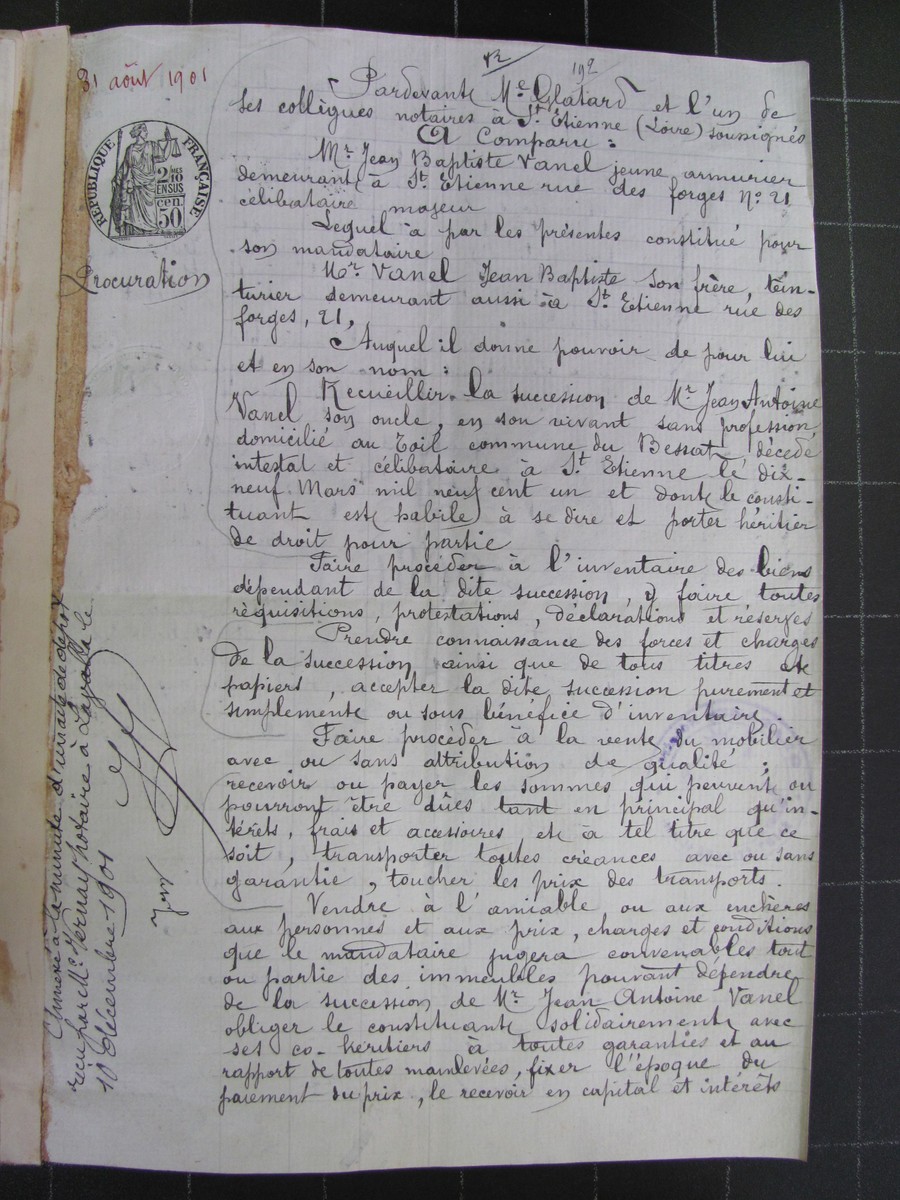 31 août 1901
192
RÉPUBLIQUE FRANÇAISE
2/10MES
EN SUS
50 cen.
Procuration
Pardevant Me Glatard et l'un de
ses collègues notaires à St Etienne (Loire) soussignés
A Comparu :
Mr Jean Baptiste Vanel jeune armurier
demeurant à St Etienne rue des forges No 21
célibataire majeur
Lequel a par les présentes constitué pour
son mandataire
Mr Vanel Jean Baptiste son frère, tein-
turier demeurant aussi à St Etienne rue des
forges, 21,
Auquel il donne pouvoir de pour lui
et en son nom :
Recueillir la succession de Mr Jean Antoine
Vanel son oncle, en son vivant sans profession
domicilié au Toil commune du Bessat, décédé
intestat et célibataire à St Etienne le dix-
neuf Mars mil neuf cent un et dont le consti-
tuant est habile à se dire et porter héritier
de droit pour partie
Faire procéder à l'inventaire des biens
dépendant de la dite succession, y faire toutes
réquisitions, protestations, déclarations et réserves
Prendre connaissance des forces et charges
de la succession ainsi que de tous titres et
papiers, accepter la dite succession purement et
simplement ou sous bénéfice d'inventaire.
Faire procéder à la vente du mobilier
avec ou sans attribution de qualité ;
recevoir ou payer les sommes qui peuvent ou
pourront être dûes tant en principal qu'in-
térêts, frais et accessoires, et à tel titre que ce
soit, transporter toutes créances avec ou sans
garantie, toucher les prix des transports.
Vendre à l'amiable ou aux enchères
aux personnes et aux prix, charges et conditions
que le mandataire jugera convenables tout
ou partie des immeubles pouvant dépendre
de la succession de Mr Jean Antoine Vanel
obliger le constituant solidairement avec
ses co-héritiers à toutes garanties et au
rapport de toutes mainlevées, fixer l'époque du
paiement du prix, le recevoir en capital et intérêts
Annexé à la minute d'un acte de dépôt
reçu par Me Vernay notaire à Lavalla le
10 décembre 1901